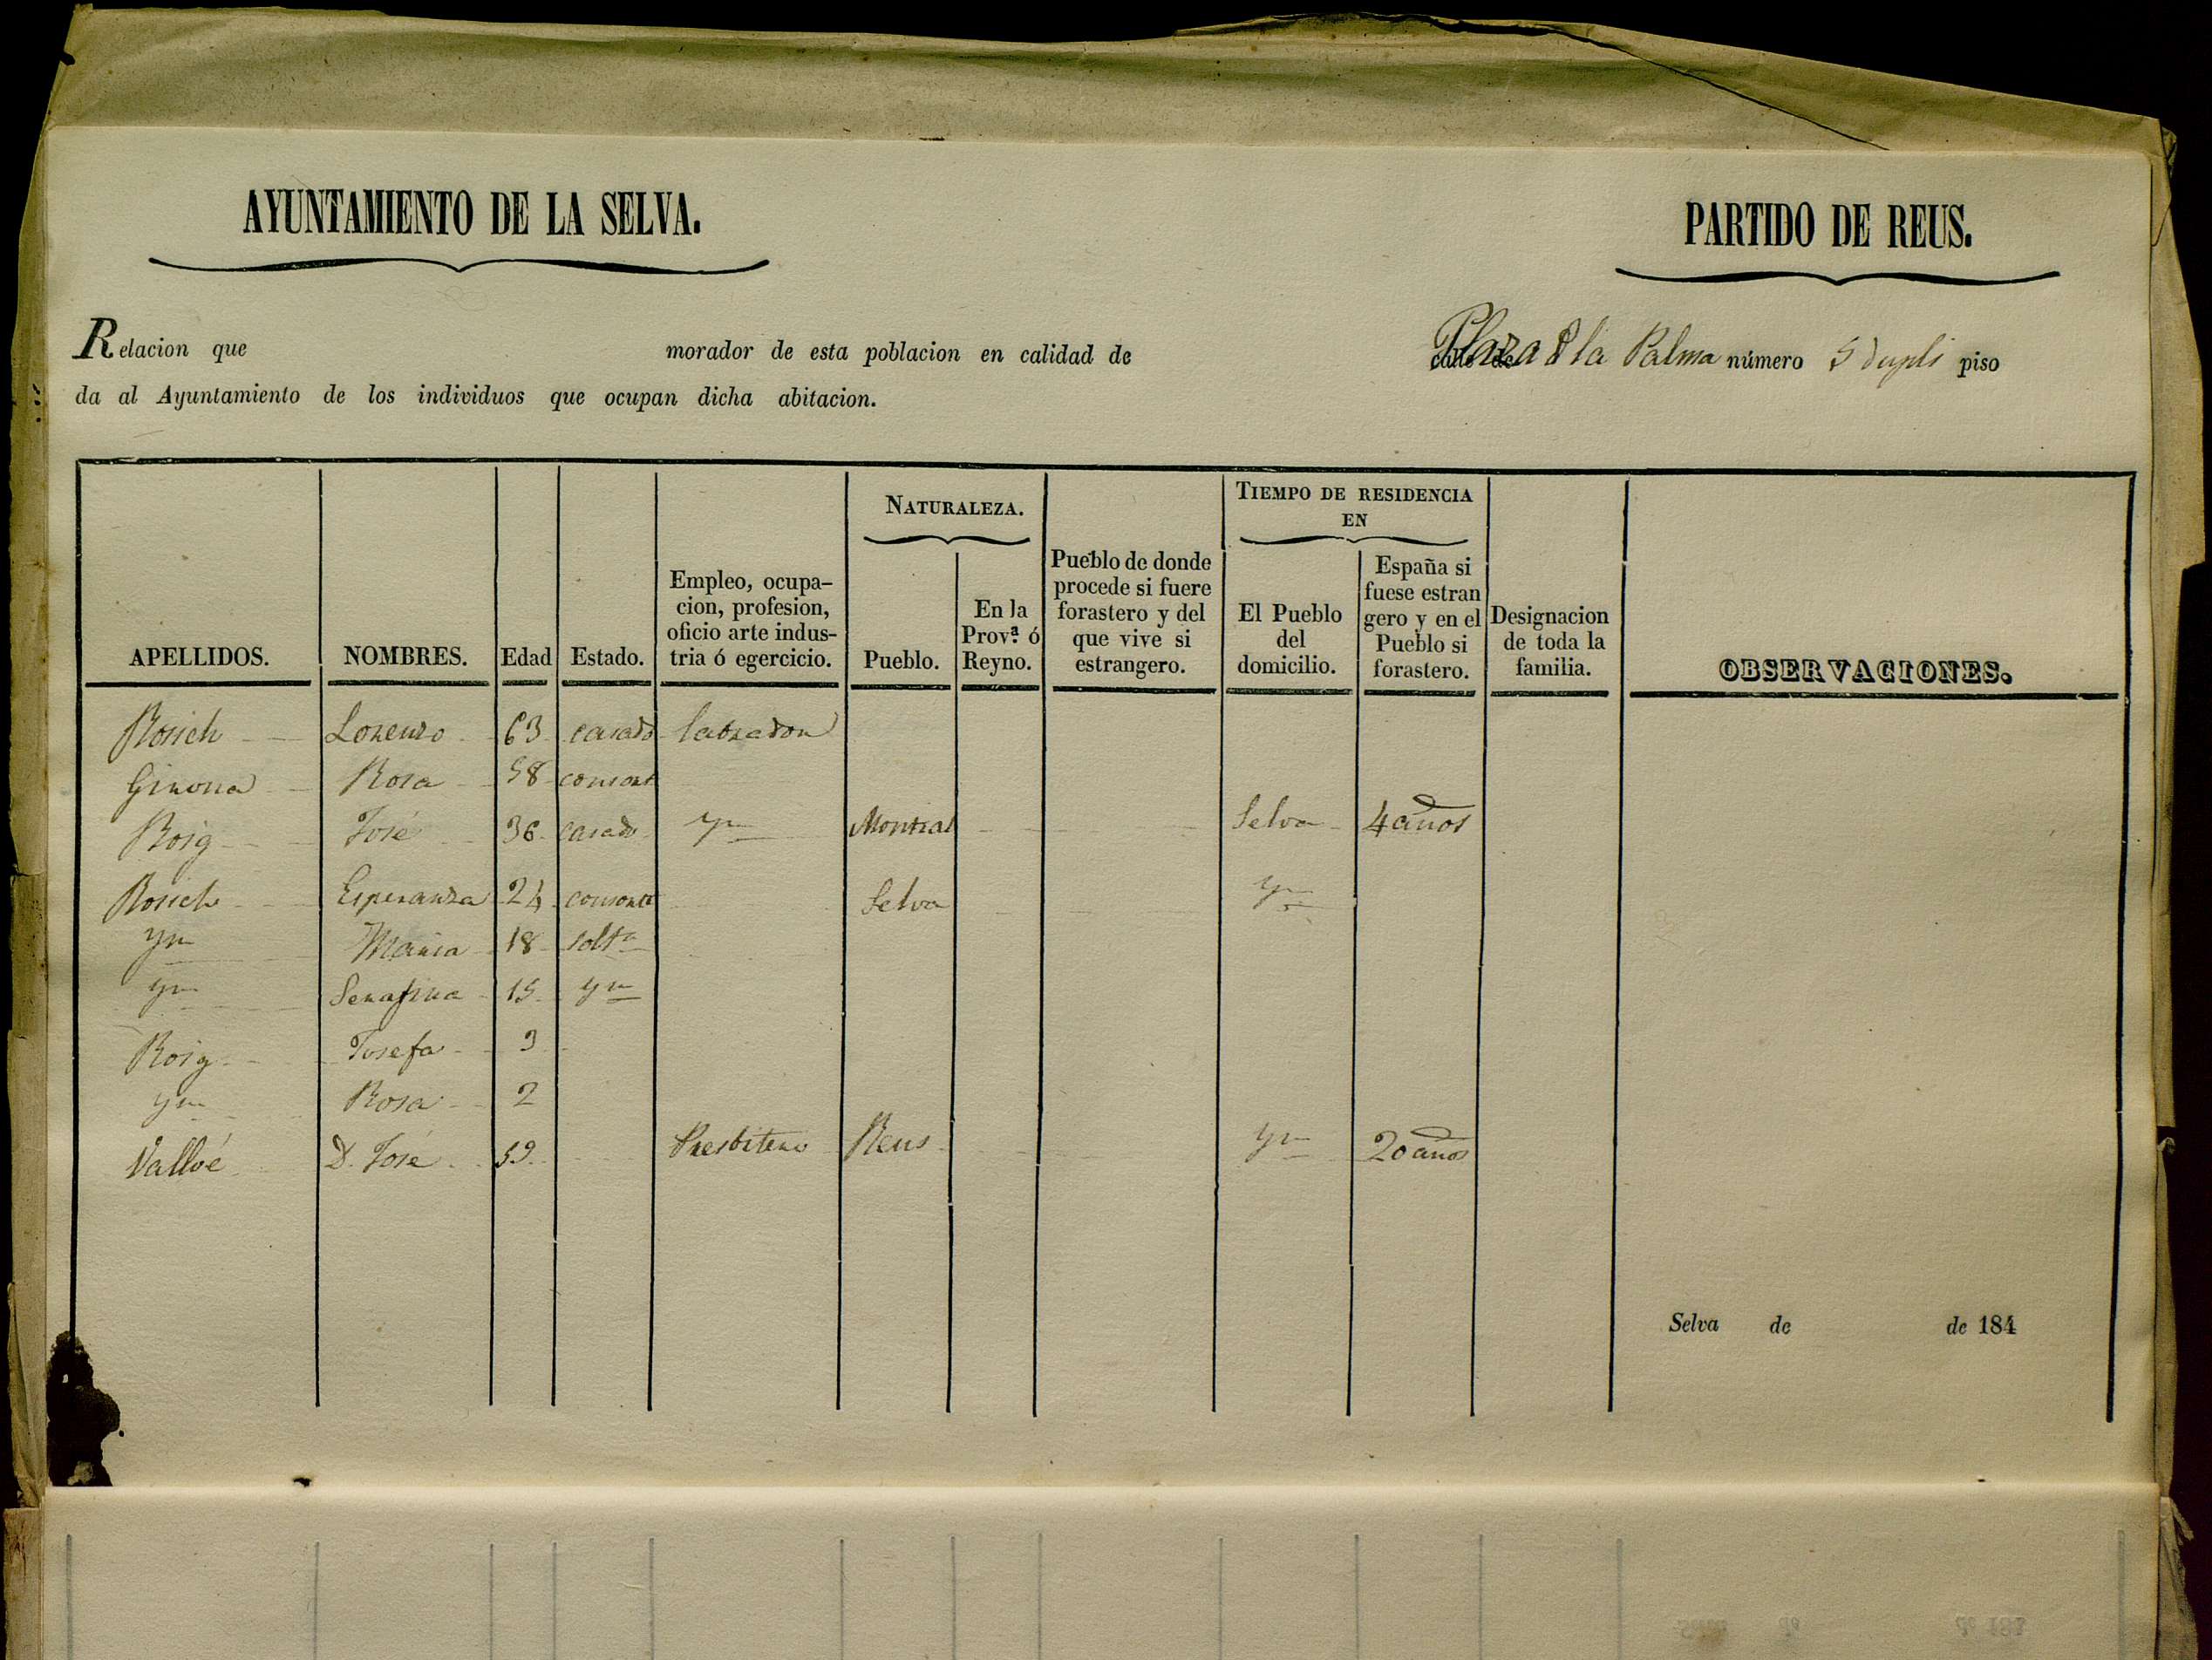 AYUNTAMIENTO DE LA SELVA.
PARTIDO DE REUS.
Relacion que morador de esta poblacion en calidad de Plaza d la Palma número 5 dupli piso
da al Ayuntamiento de los individuos que ocupan dicha abitacion.
APELLIDOS.
NOMBRES.
Edad
Estado.
Empleo, ocupa-
cion, profesion,
oficio arte indus-
tria ó egercicio.
NATURALEZA.
Pueblo.
En la
Prov.ª ó
Reyno.
Pueblo de donde
procede si fuere
forastero y del
que vive si
estrangero.
TIEMPO DE RESIDENCIA
EN
El Pueblo
del
domicilio.
España si
fuese estran
gero y en el
Pueblo si
forastero.
Designacion
de toda la
familia.
OBSERVACIONES.
Rosich Lorenzo 63 casado labrador
Girona Rosa 58 consort
Roig José 36 casado ym Montral Selva 4 años
Rosich Esperanza 24 consorte Selva ym
ym Maria 18 solt.a
ym Serafina 15 ym
Roig Josefa 3
ym Rosa 2
Vallvé D. José 59 Presbitero Reus ym 20 años
Selva de de 184